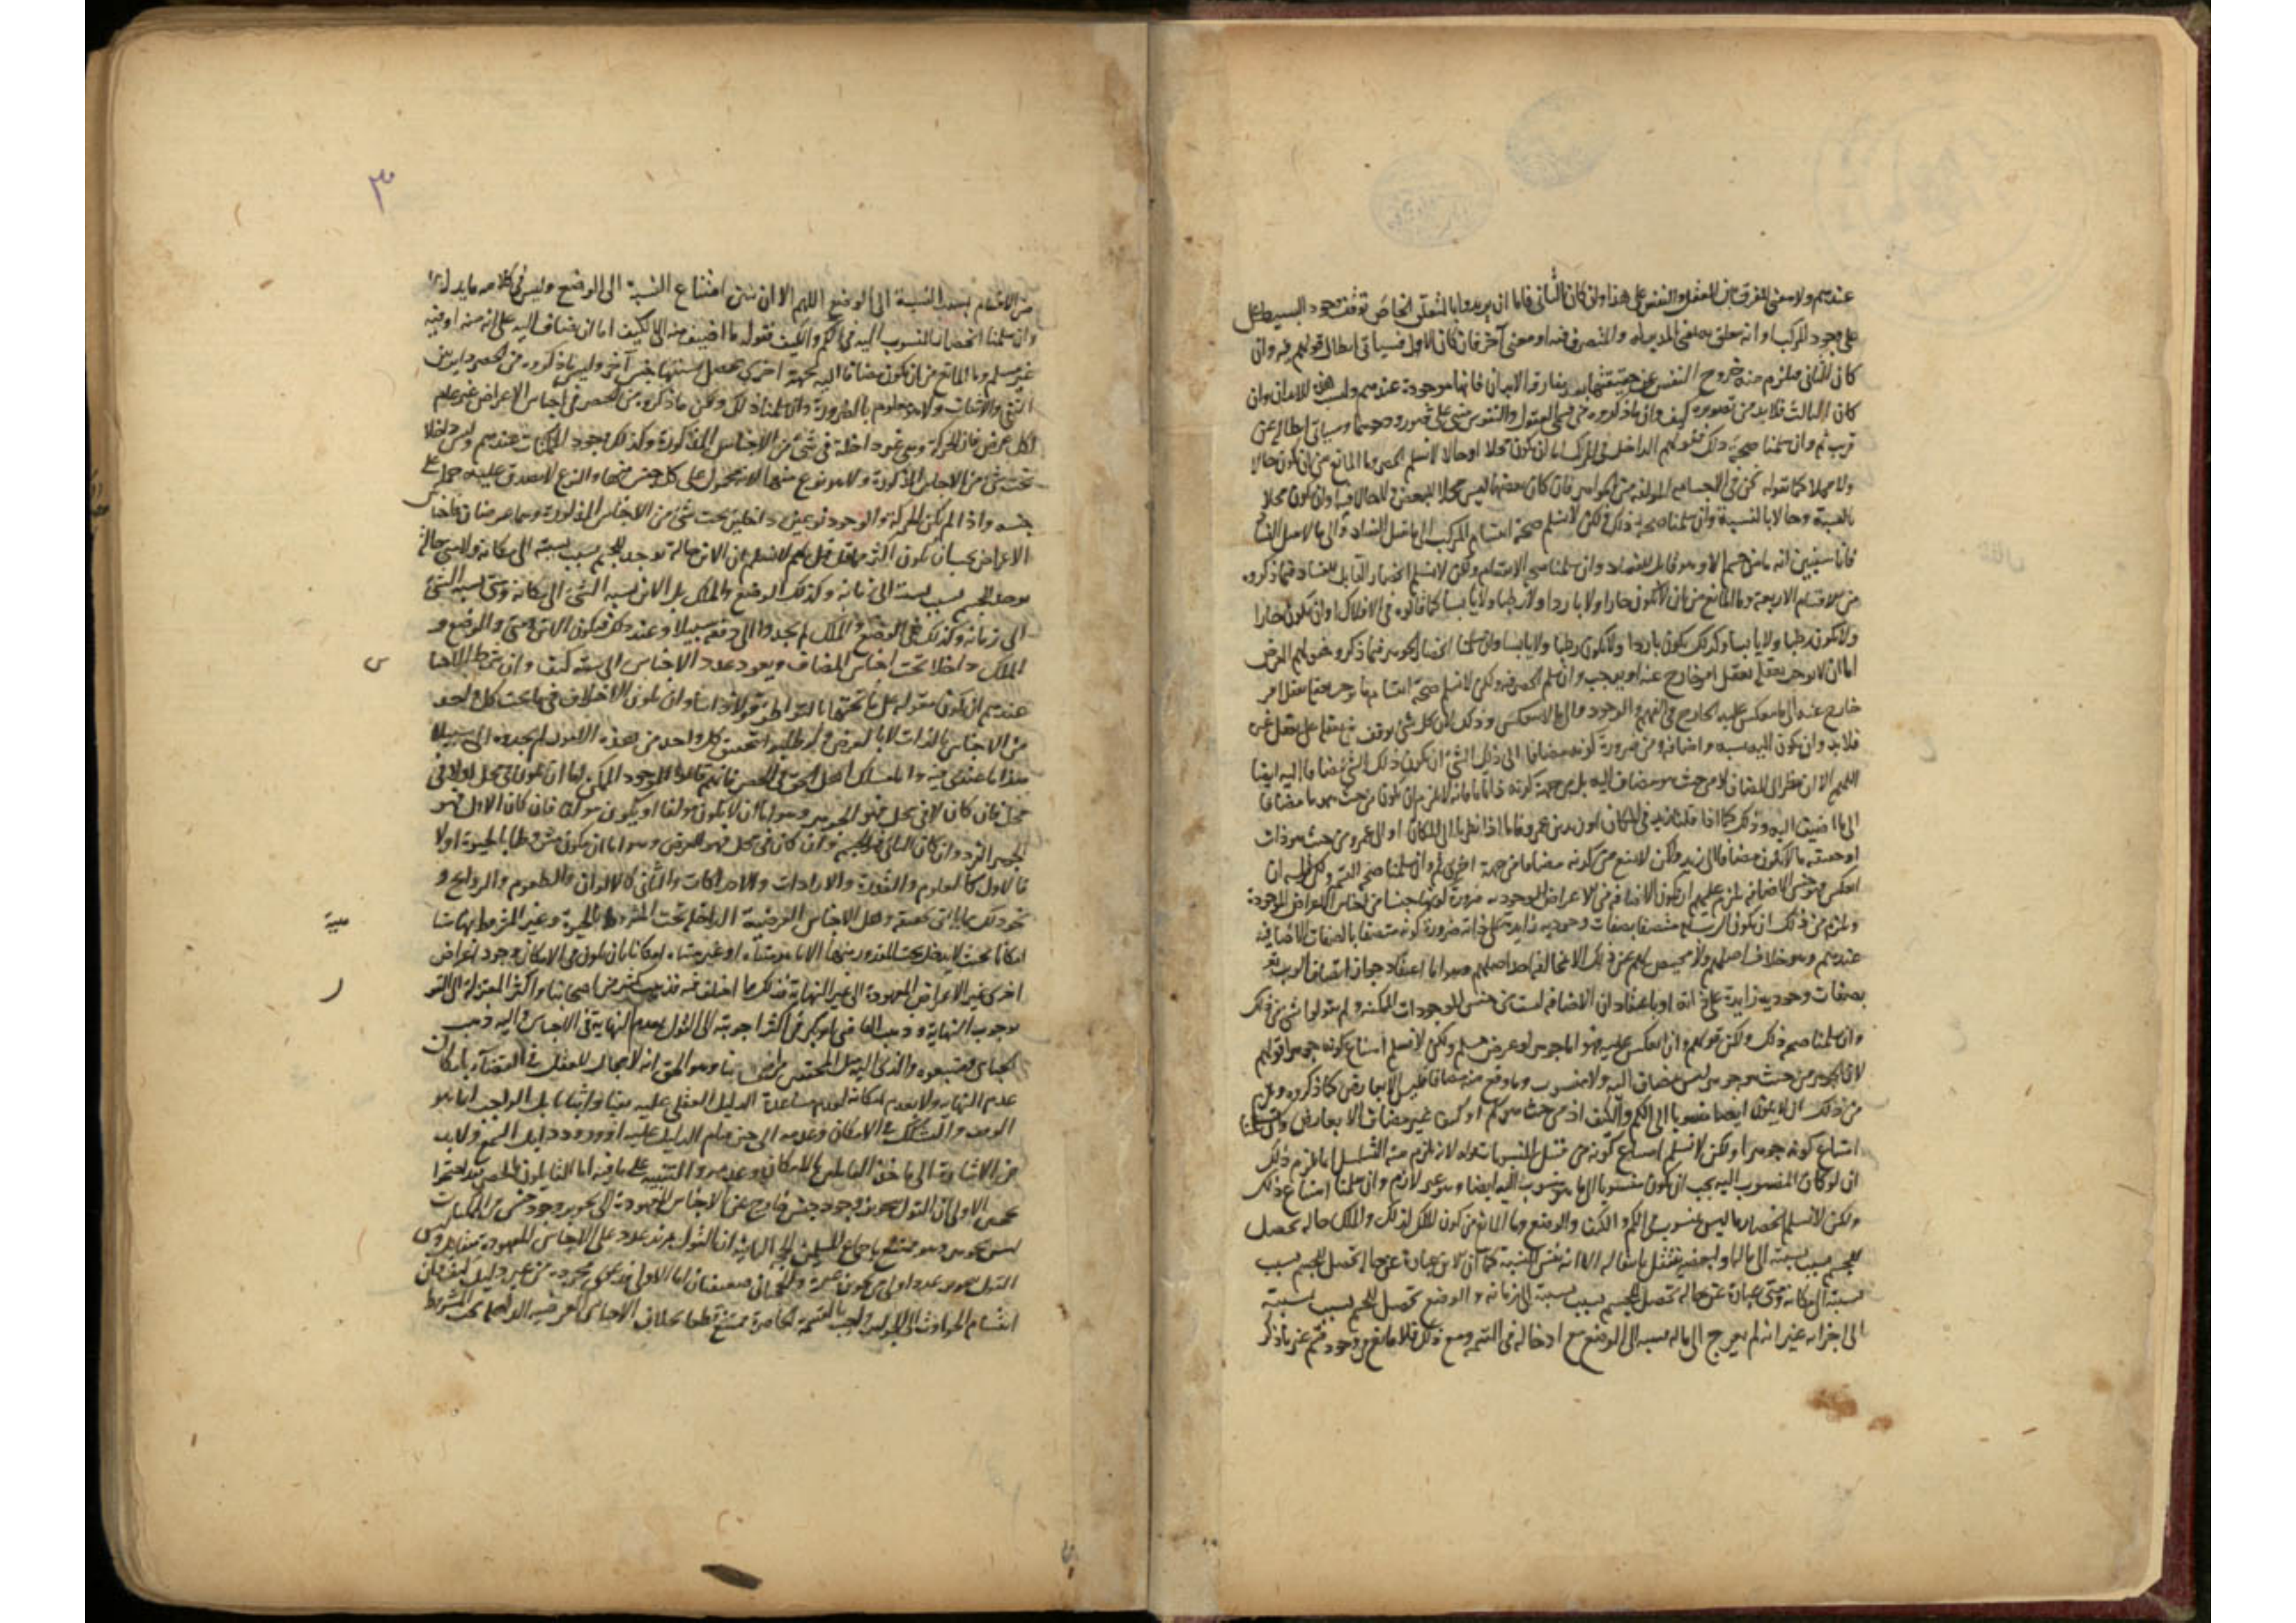 عندهم ولا معنى للفرق بين العقل والنفس على هذا وان كان الثانى فاما ان يريدوا بالتعلق الخاص توقف وجود البسيط على
على وجود المركب او انه متعلق به بمعنى المدبر له والمتصرف فيه او معنى آخر فان كان الاول فسياتى ابطال قولهم فيه وان
كان الثانى فيلزم منه خروج النفس عن حقيقتها بعد مفارقة الابدان فانها موجودة عندهم وليست للابدان وان
كان الثالث فلا بد من تصويره كيف وان ما ذكروه فى العقول والنفوس مبنى على تصور وجودها وسياتى ابطاله عن
قرب ثم وان سلمنا صحة ذلك فقولهم الداخل فى المركب اما ان يكون محلا او حالا لا نسلم الحصر وما المانع من ان يكون حالا
ولا محلا كما نقوله نحن فى الجسم المولفة من الجواهر فان كان بعضها ليس محلا للبعض ولا حالا فيه وان كون محلا
بالنسبة وحالا بالنسبة وان سلمنا صحة ذلك ولكن لا نسلم صحة انقسام المركب الى ما يقبل الفساد والى ما لا يقبل الفساد
فانا سنبين انه ما من جسم الا وهو قابل للفساد وان سلمنا صحة الانقسام ولكن لا نسلم انحصار القابل للفساد فيما ذكروه
من الاقسام الاربعة وما المانع من ان لا يكون حارا ولا باردا ولا رطبا ولا يابسا كما قالوه فى الافلاك او ان يكون حارا
ولا يكون رطبا ولا يابسا وكذلك يكون باردا ولا يكون رطبا ولا يابسا وان سلمنا انحصار الجوهر فيما ذكروه فقولهم العرض
اما ان لا يوجب تعقله تعقل امر خارج عنه او يوجب وان سلم الحصر فيه ولكن لا نسلم صحة انقسام ما يوجب تعقله تعقل امر
خارج عنه الى ما ينعكس عليه الخارج فى الفهم والوجود والى ما لا ينعكس وذلك لان كل شئ توقف تعقله على تعقل غيره
فلا بد وان يكون اليه نسبة واضافة ومن ضرورة كونه مضافا الى ذلك الشئ ان يكون ذلك الشئ مضافا اليه ايضا
اللهم الا ان ينظر الى المضاف لا من حيث هو مضاف اليه بل من جهة كونه
الى ما اضيف اليه وذلك كما اذا قلنا زيد فى المكان او بن عمرو فاما اذا نظرنا الى المكان او الى عمرو من حيث هو ذات
او حقيقة ما لا يكون مضافا الى زيد ولكن لا يمنع من كونه مضافا من جهة اخرى ثم وان سلمنا صحة القسم وكل ما
انعكس فهو جنس الاضافة فيلزم عليهم ان يكون الاضافة من الاعراض الوجودية ضرورة كونها جنسا من اجناس الاعراض الموجودة
ويلزم من ذلك ان يكون الرب تعالى متصفا بصفات وجودية زايدة على ذاته ضرورة كونه متصفا بالصفات الاضافية
عندهم وهو خلاف اصلهم ولا محيص لهم عن ذلك الا بمخالفة احد اصليهم وهو اما اعتقاد جواز اتصاف الرب تعالى
بصفات وجودية زايدة على ذاته او باعتقاد ان الاضافة ليست من جنس الموجودات الممكنة ولم يقولوا بشئ من ذلك
وان سلمنا صحة ذلك ولكن قولهم وان انعكس عليه فهو اما جوهر او عرض مسلم ولكن لا نسلم امتناع كونه جوهرا قولهم
لان الجوهر من حيث هو جوهر ليس مضاف اليه ولا منسوب وما وقع منه مضافا فليس الا بعارض كما ذكروه ويلزم
من ذلك ان لا يكون ايضا منسوبا الى الكم والكيف اذ من حيث هو كم او كيف غير مضاف الا بعارض وان سلمنا
امتناع كونه جوهرا ولكن لا نسلم امتناع كونه من قبيل المنسوبات قوله لانه يلزم منه التسلسل انما يلزم ذلك
ان لو كان المنسوب اليه يجب ان يكون منسوبا الى ما هو منسوب اليه ايضا وهو غير لازم وان سلمنا امتناع ذلك
ولكن لا نسلم انحصار ما ليس بمنسوب فى الكم والكيف والوضع وما المانع من كون الملك كذلك والملك حالة تحصل
للجسم بسبب نسبته الى ما له او لبعضه ينتقل بانتقاله لا انه نفس النسبة كما ان الاين عبارة عن حالة تحصل للجسم بسبب
نسبته الى مكانه ومتى عبارة عن حالة تحصل للجسم بسبب نسبته الى زمانه والوضع تحصل للجسم بسبب نسبته
الى اجزائه غير انه لم يعرج الى ما له نسبة الى الوضع مع ادخاله فى القسمة ومع ذلك فلا مانع من وجود قسم غير ما ذكر
٣
من الاقسام بسبب النسبة الى الوضع اللهم الا ان يبين امتناع النسبة الى الوضع وليس فى كلامه ما يدل عليه
وان سلمنا انحصار المنسوب اليه فى الكم والكيف فقوله ما اضيف منه الى الكيف اما ان يضاف اليه على انه منه او فيه
غير مسلم وما المانع من ان يكون مضافا اليه بجهة اخرى يحصل بسببها جنس آخر وليس ما ذكروه من الحصر داير بين
النفى والاثبات ولا هو معلوم بالضرورة وان سلمنا ذلك ولكن ما ذكروه من الحصر فى اجناس الاعراض غير عام
لكل عرض فان الحركة وهى غير داخلة فى شئ من الاجناس المذكورة وكذلك وجود الممكنات عندهم وليس داخلا
تحت شئ من الاجناس المذكورة ولا هو نوع منها لانه محمول على كل جنس منها والنوع لا يصدق عليه حمله على
جنسه واذا لم يكن الحركة والوجود نوعين داخلين تحت شئ من الاجناس المذكورة وهما عرضان فاجناس
الاعراض يجب ان يكون اكثر مما قيل ثم لا نسلم ان الاين حالة توجد للجسم بسبب نسبته الى مكانه ولا متى حالة
توجد للجسم بسبب نسبته الى زمانه وكذلك الوضع والملك بل الاين نسبة الشئ الى مكانه ومتى نسبة الشئ
الى زمانه وكذلك فى الوضع والملك لم يجدوا الى دفعه سبيلا وعند ذلك فيكون الاين ومتى والوضع و
الملك داخلا تحت اجناس المضاف ويعود عدد الاجناس الى ستة كيف وان شرط الاجناس
عندهم ان يكون مقولة على ما تحتها بالتواطؤ قولا ذاتيا وان يكون الاختلاف فيما تحت كل واحد
من الاجناس بالذات لا بالعرض ولو طلبوا تحقيق كل واحد من هذه الامور لم يجدوه الى سبيلا
هذا ما عندى فيه واما مسلك اهل الحق فى الحصر فانهم قالوا الموجود الممكن اما ان يكون فى محل او لا فى
محل فان كان لا فى محل فهو الجوهر وهو اما ان لا يكون مولفا او يكون مولفا فان كان الاول فهو
الجوهر الفرد وان كان الثانى فهو الجسم وان كان فى محل فهو العرض وهو اما ان يكون مشروطا بالحيوة او لا
فالاول كالعلوم والقدرة والارادات والادراكات والثانى كالالوان والطعوم والروايح و
نحو ذلك وهل الاجناس العرضية الداخلة تحت المشروط بالحيوة وغير المشروط بها متناهية
امكانا بحيث لا يدخل تحت المقدور منها الا ما هو متناه او غير متناه امكانا بان يكون فى الامكان وجود اعراض
اخرى غير الاعراض المعهودة الى غير النهاية فذلك مما اختلف فيه فذهب كثير من اصحابنا واكثر المعتزلة الى القول
بوجوب النهاية وذهب القاضى ابو بكر فى اكثر اجوبته الى القول بعدم النهاية فى الاجناس واليه ذهب
الجبائى ومتبعوه والذى اليه ميل المحققين من اصحابنا وهو الحق انه لا مجال للعقل فى القضاء بامكان
عدم النهاية ولا بعدم امكانه لعدم مساعدة الدليل العقلى عليه نفيا واثباتا بل الواجب انما هو
الوقف والتشكك فى الامكان وعدمه الى حين قيام الدليل عليه او ورود دليل السمع ولا بد
من الاشارة الى ماخذ القايلين بالامكان وعدمه والتنبيه على ما فيه اما القايلون بالحصر فقد احتجوا
بحجتين الاولى ان القول بتجويز وجود جنس خارج عن الاجناس المعهودة الى تجويز وجود جنس من الممكنات
ليس بجوهر وهو ممتنع باجماع المسلمين الحجة الثانية ان القول بمزيد عدد على الاجناس المعهودة
القول بتجويز عدد اولى من تجويز غيره والحجتان ضعيفتان اما الاولى فدعوى مجردة من غير دليل كيف وان
انقسام الحوادث الى الجواهر والقسمة الحاصرة ممتنع قطعا بخلاف الاجناس العرضية الداخلة تحت المشروط
س
ر